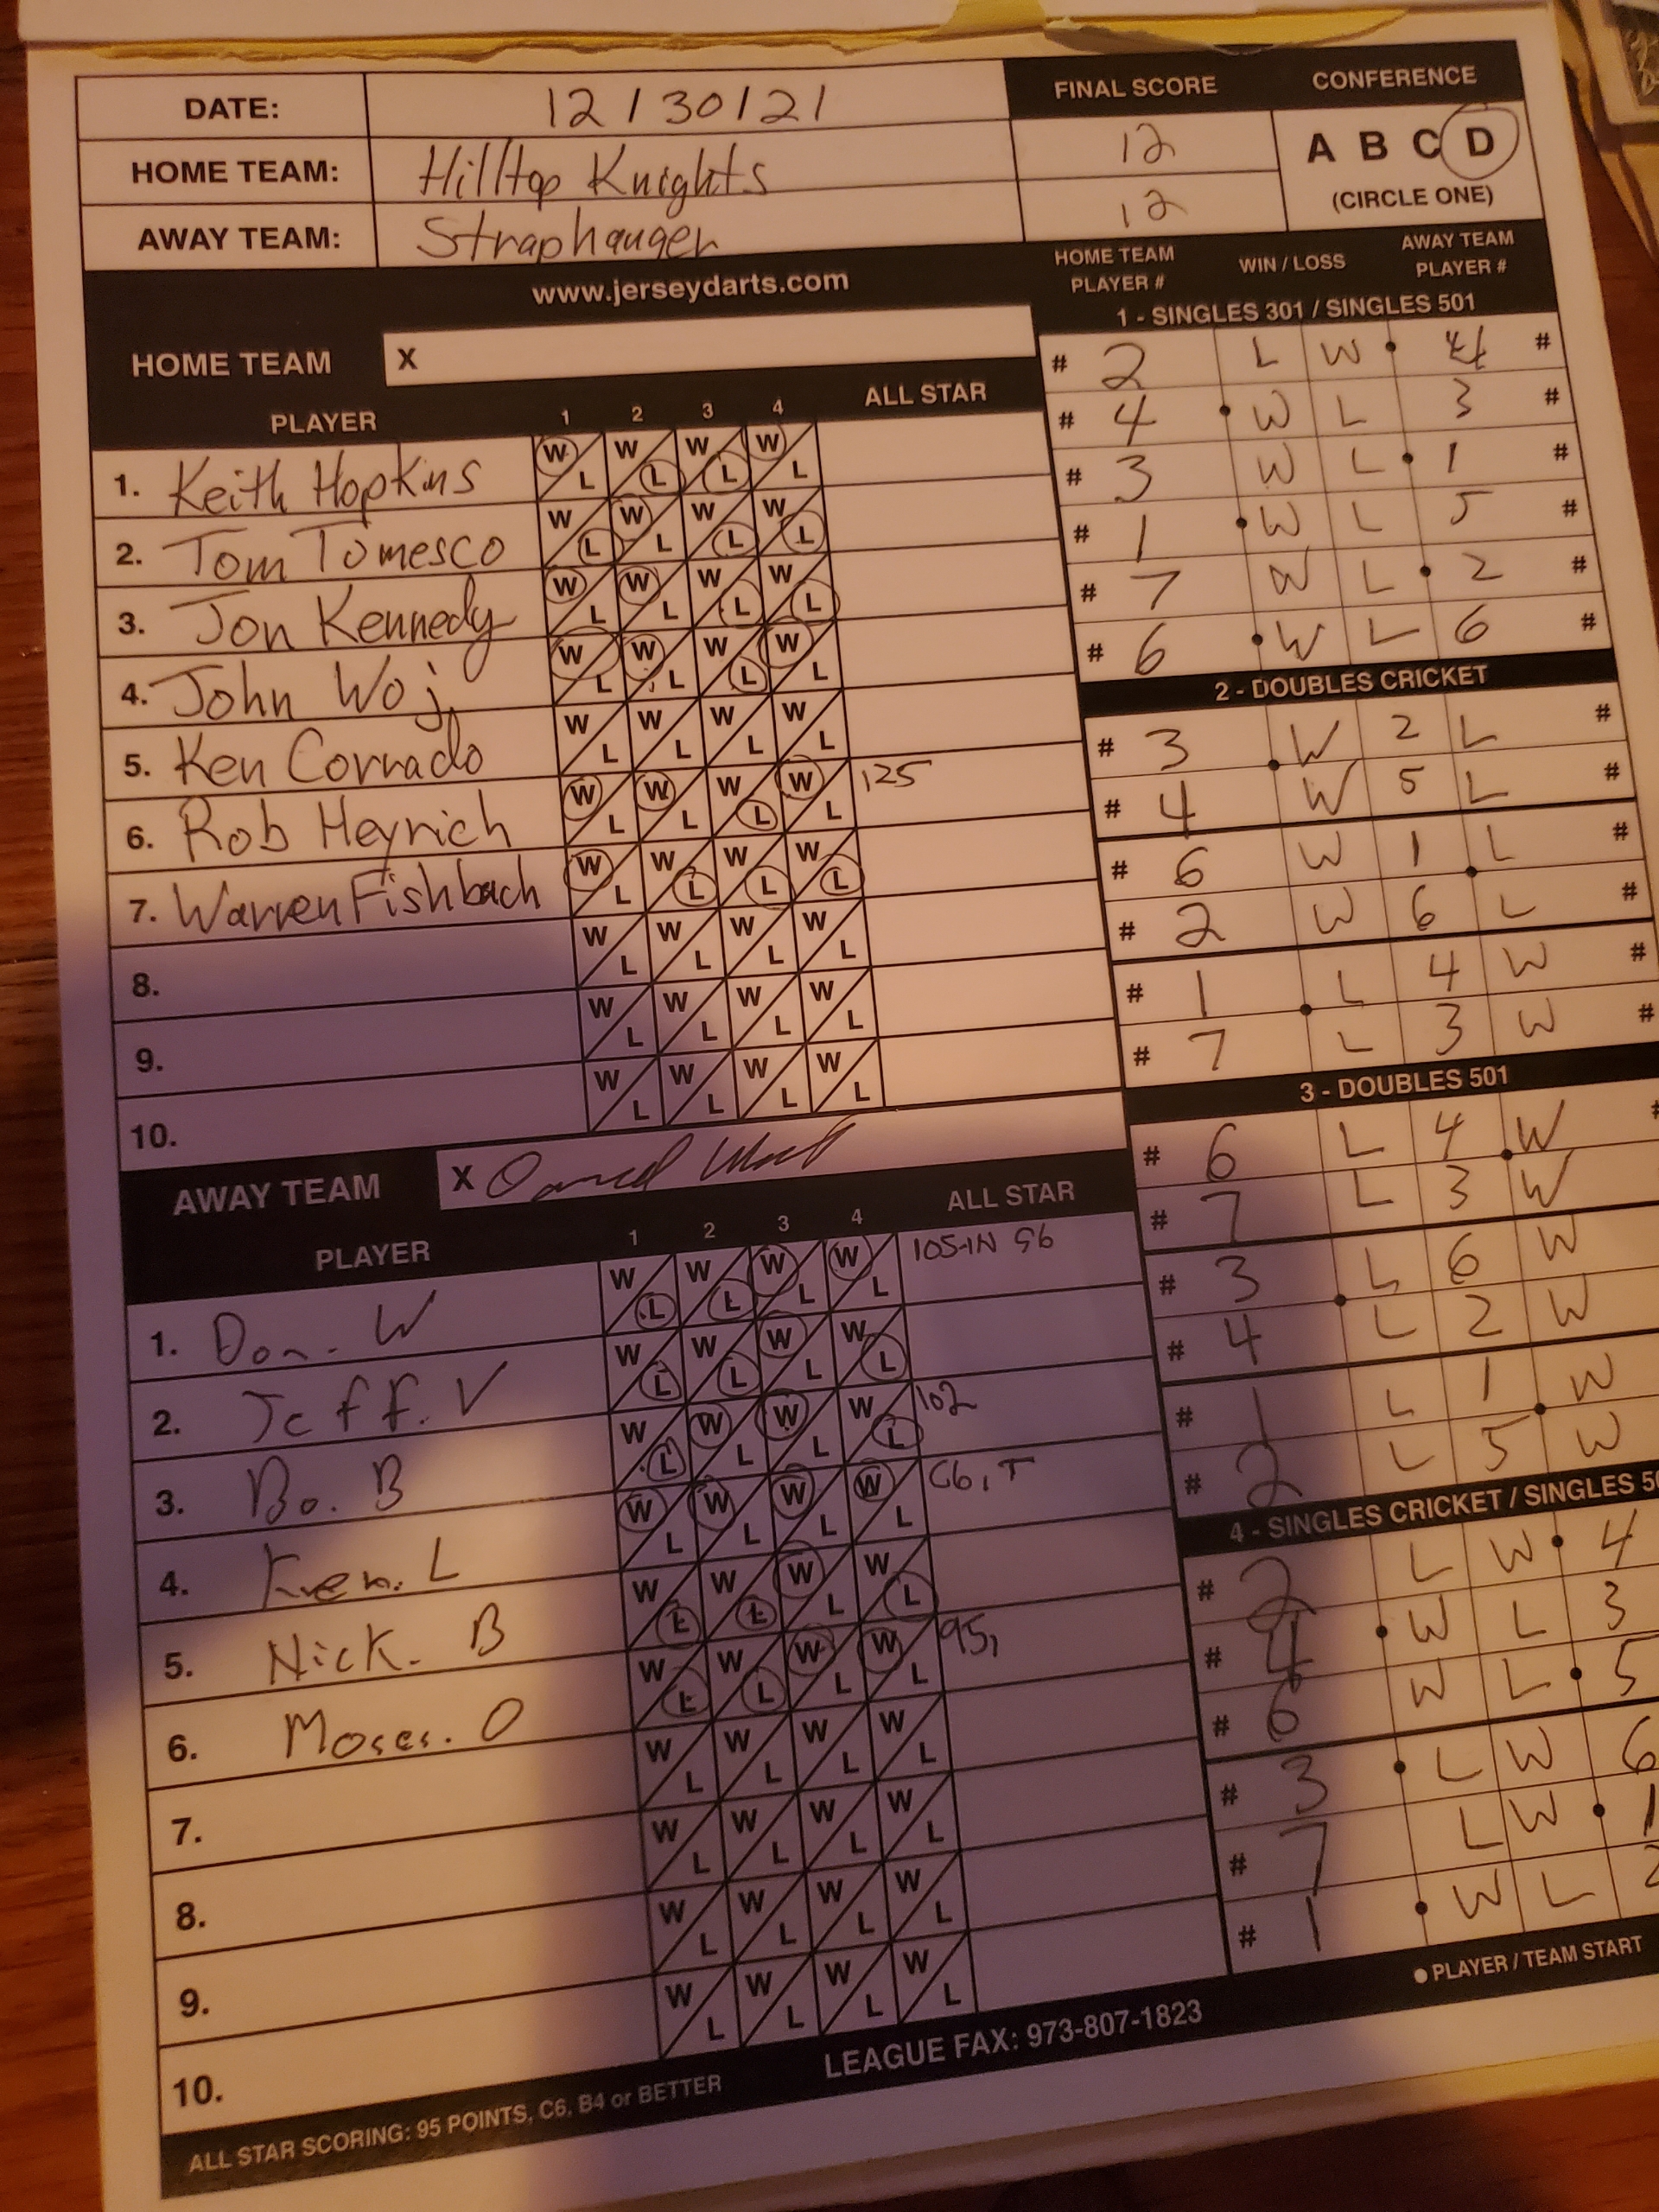 DATE: 12/30/21
HOME TEAM: Hilltop Knights
AWAY TEAM: Straphanger
FINAL SCORE
12
12
CONFERENCE
A B C D
(CIRCLE ONE)
www.jerseydarts.com
HOME TEAM X
PLAYER 1 2 3 4 ALL STAR
1. Keith Hopkins W L W L W L W L
2. Tom Tomesco W L W L W L W L
3. Jon Kennedy W L W L W L W L
4. John Woj W L W L W L W L
5. Ken Corrado W L W L W L W L
6. Rob Heyrich W L W L W L W L 125
7. Warren Fishbach W L W L W L W L
8. W L W L W L W L
9. W L W L W L W L
10. W L W L W L W L
AWAY TEAM X
PLAYER 1 2 3 4 ALL STAR
1. Don. W W L W L W L W L 105-IN 96
2. Jeff. V W L W L W L W L
3. Bo. B W L W L W L W L 102
4. Ken. L W L W L W L W L C6, T
5. Nick. B W L W L W L W L
6. Moses. O W L W L W L W L 95,
7. W L W L W L W L
8. W L W L W L W L
9. W L W L W L W L
10. W L W L W L W L
ALL STAR SCORING: 95 POINTS, C6, B4 or BETTER
LEAGUE FAX: 973-807-1823
HOME TEAM PLAYER # WIN / LOSS AWAY TEAM PLAYER #
1 - SINGLES 301 / SINGLES 501
# 2 L W 4 #
# 4 W L 3 #
# 3 W L 1 #
# 1 W L 5 #
# 7 W L 2 #
# 6 W L 6 #
2 - DOUBLES CRICKET
# 3 W 2 L #
# 4 W 5 L #
# 6 W 1 L #
# 2 W 6 L #
# 1 L 4 W #
# 7 L 3 W #
3 - DOUBLES 501
# 6 L 4 W #
# 7 L 3 W
# 3 L 6 W
# 4 L 2 W
# 1 L 1 W
# 2 L 5 W
4 - SINGLES CRICKET / SINGLES
# 2 L W 4
# 4 W L 3
# 6 W L 5
# 3 L W 6
# 7 L W 1
# 1 W L 2
PLAYER / TEAM START